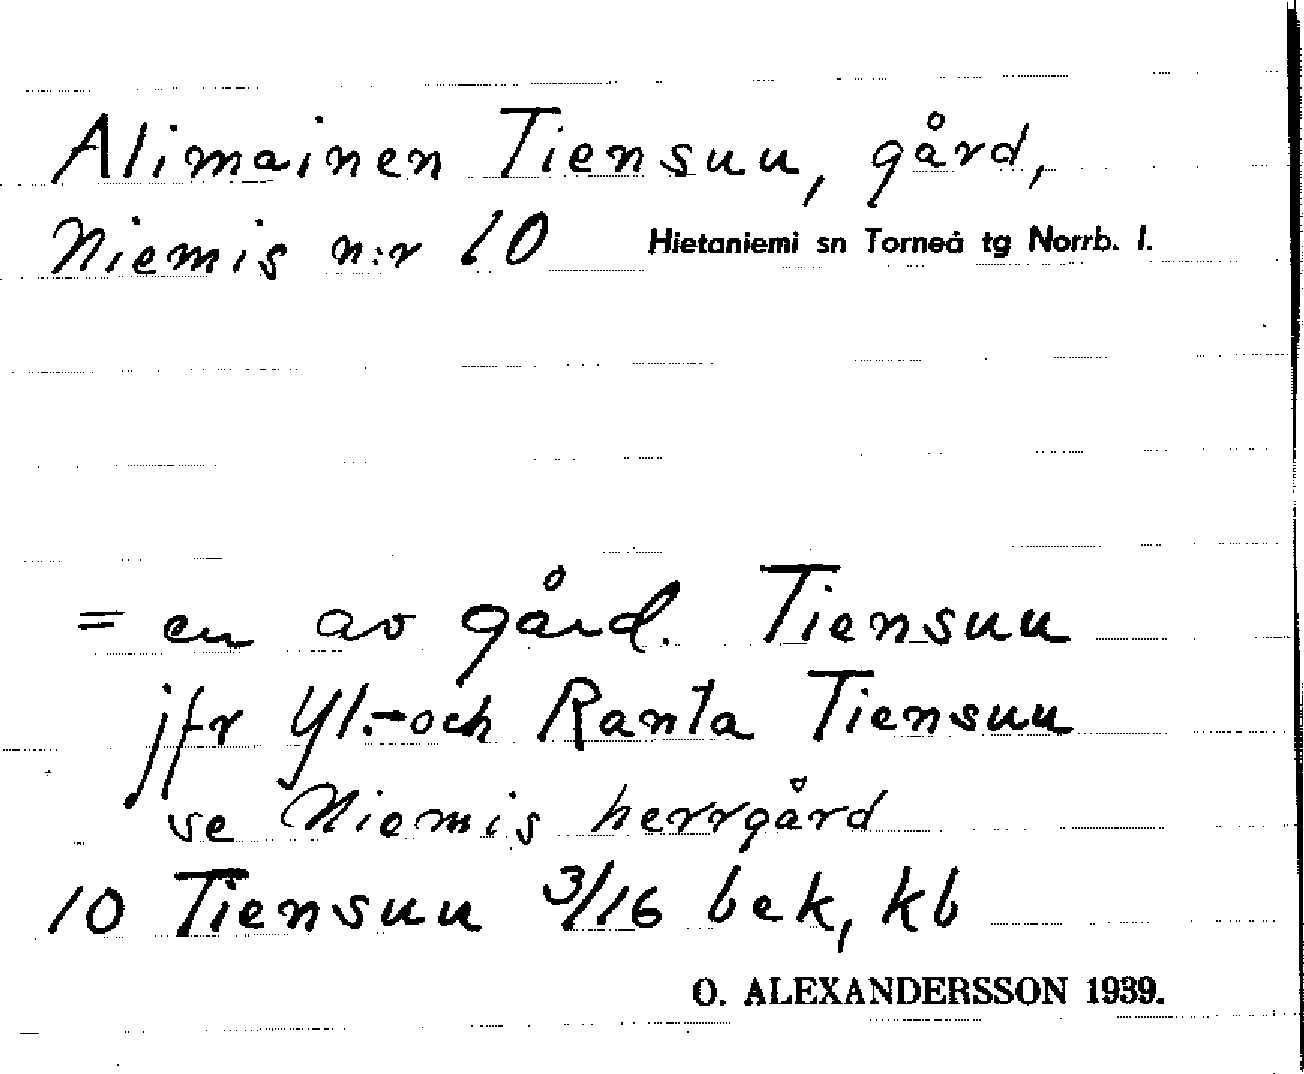 Alimainen Tiensuu, gård,
Niemis n:r 10 Hietaniemi sn Torneå tg Norrb. l.
= en av gård. Tiensuu
jfr Yl.- och Ranta Tiensuu
se Niemis herrgård
10 Tiensuu 3/16 bek, kb
O. ALEXANDERSSON 1939.